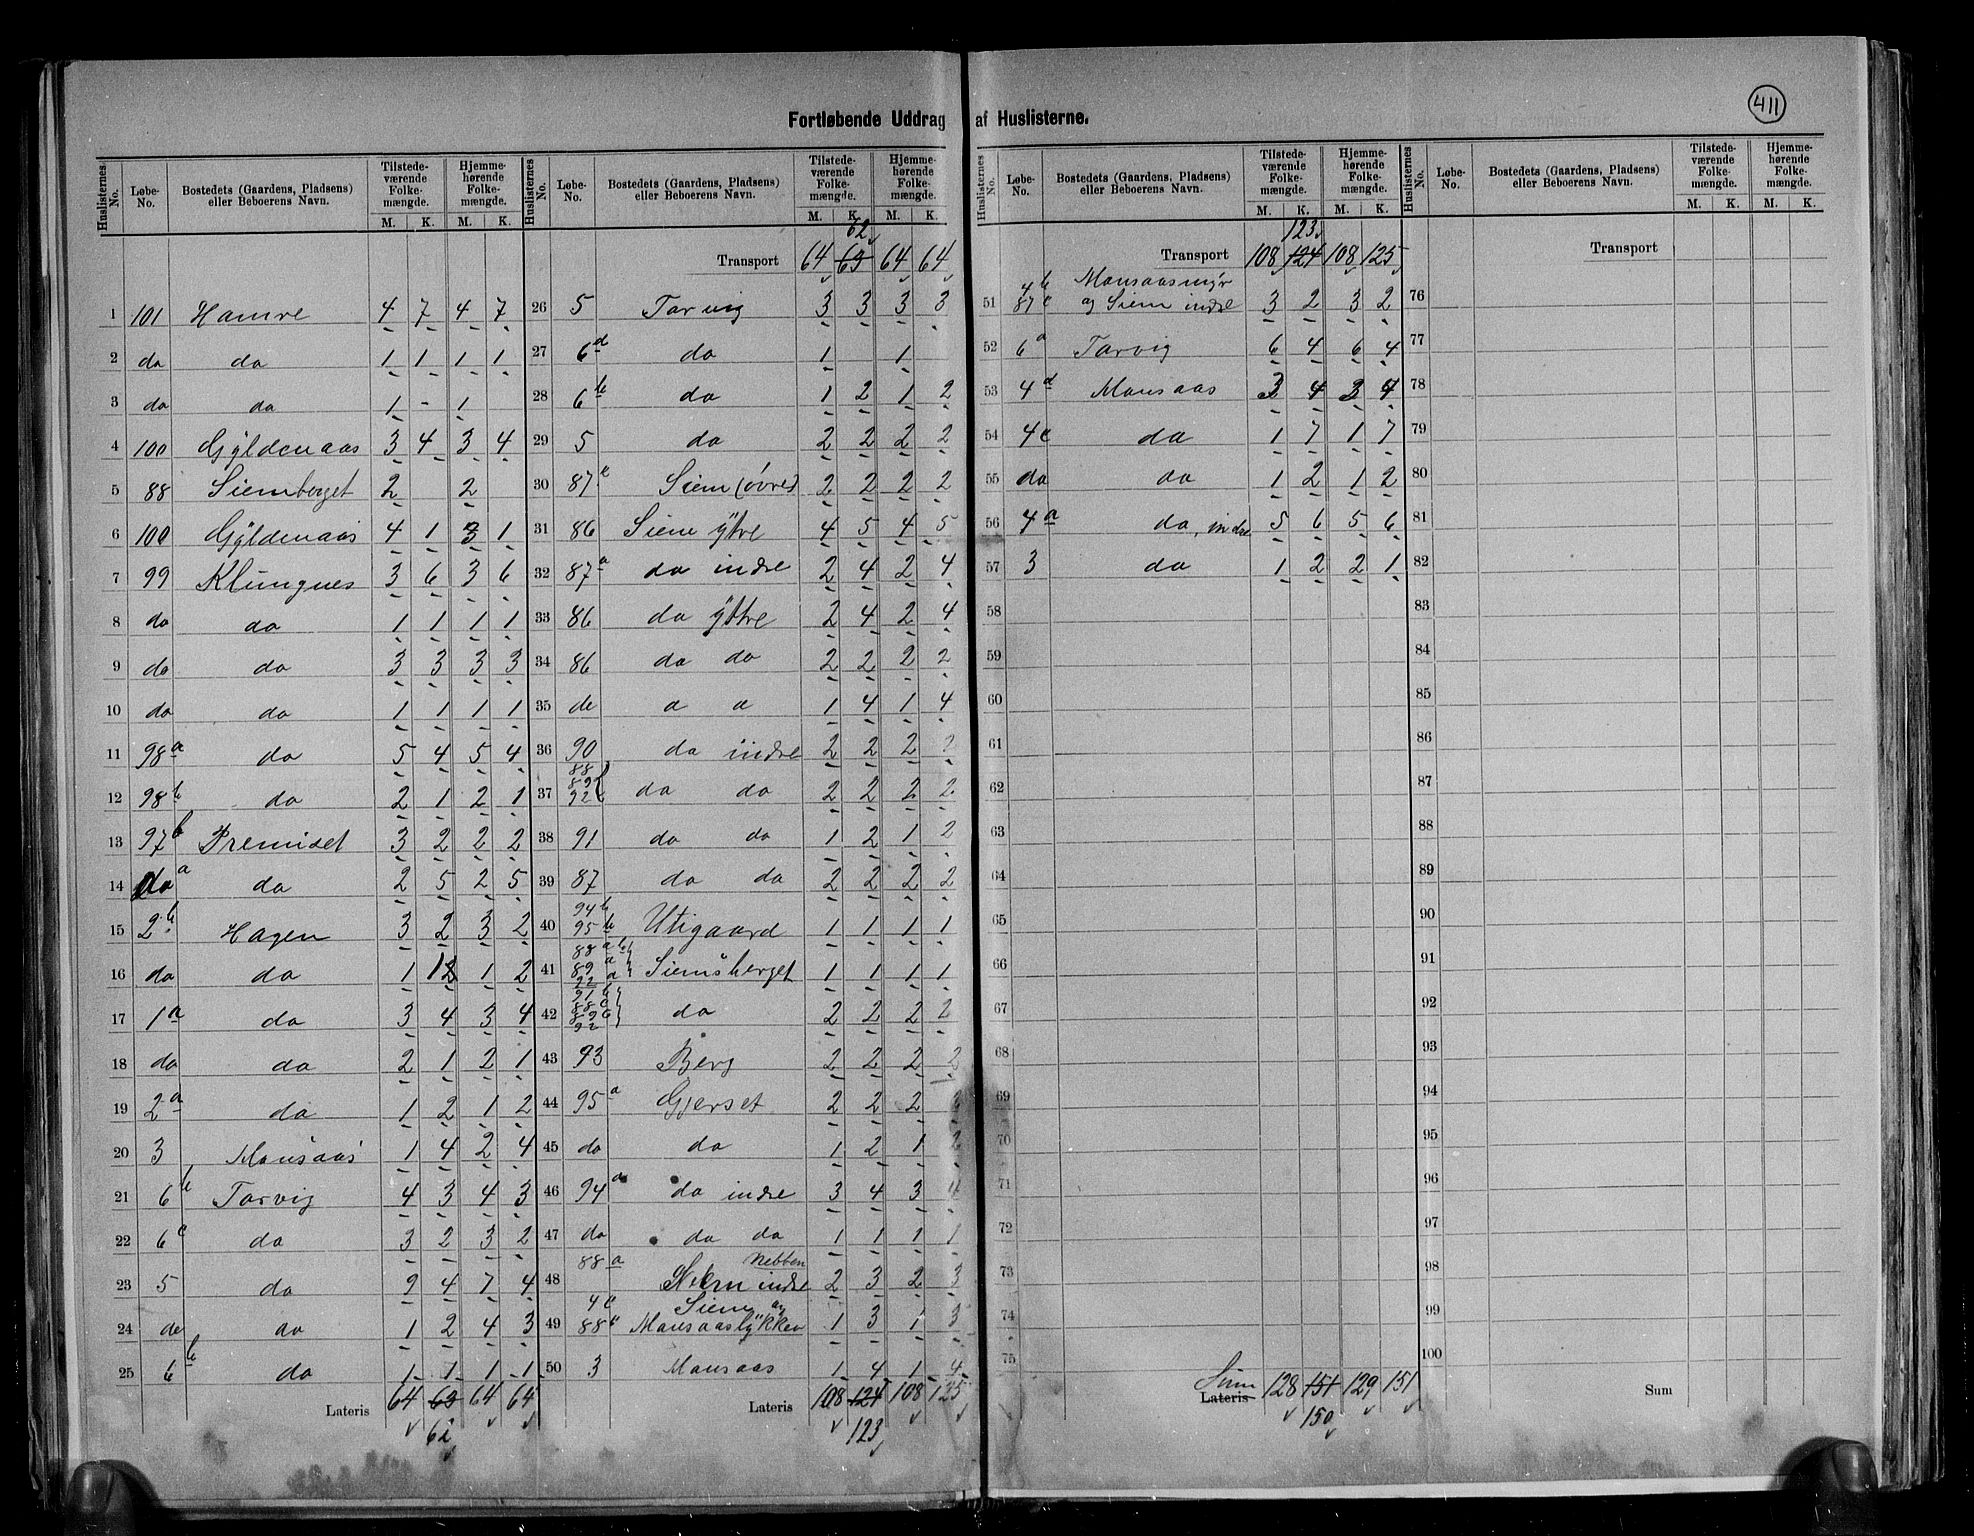 411
Fortløbende Uddrag af Huslisterne.
Huslisternes No. | Løbe-No. | Bostedets (Gaardens, Pladsens) eller Beboerens Navn. | Tilstedeværende Folkemængde. M. K. | Hjemmehørende Folkemængde. M. K.
1 101 Hamre 4 7 4 7
2 do do 1 1 1 1
3 do do 1 - 1
4 100 Gyldenaas 3 4 3 4
5 88 Siemberget 2 2
6 100 Gyldenaas 4 1 3 1
7 99 Klungnes 3 6 3 6
8 do do 1 1 1 1
9 do do 3 3 3 3
10 do do 1 1 1 1
11 98a do 5 4 5 4
12 98b do 2 1 2 1
13 97b Premiset 3 2 2 2
14 do a do 2 5 2 5
15 2b Hagen 3 2 3 2
16 do do 1 1 2
17 1a do 3 4 3 4
18 do do 2 1 2 1
19 2a do 1 2 1 2
20 3 Mansaas 1 4 2 4
21 6b Tarvig 4 3 4 3
22 6c do 3 2 3 2
23 5 do 9 4 7 4
24 do do 1 2 4 3
25 6b do 1 1 1 1
Lateris 64 63 64 64
62
Huslisternes No. | Løbe-No. | Bostedets (Gaardens, Pladsens) eller Beboerens Navn. | Tilstedeværende Folkemængde. M. K. | Hjemmehørende Folkemængde. M. K.
62
Transport 64 63 64 64
26 5 Tarvig 3 3 3 3
27 6d do 1 1
28 6b do 1 2 1 2
29 5 do 2 2 2 2
30 87c Siem (övre) 2 2 2 2
31 86 Siem ytre 4 5 4 5
32 87a do indre 2 4 2 4
33 86 do yttre 2 4 2 4
34 86 do do 2 2 2 2
35 do a a 1 4 1 4
36 90 do indre 2 2 2 2
37 88 89 92 do do 2 2 2 2
38 91 do do 1 2 1 2
39 87 do do 2 2 2 2
40 94b 95b Utigaard 1 1 1 1
41 88a 89a 92a Siemsberget 1 1 1 1
42 91b 88c 89c 92 do 2 2 2 2
43 93 Berg 2 2 2 2
44 95a Gjerset 2 2 2 2
45 do do 1 2 1 2
46 94a do indre 3 4 3 4
47 do do do 1 1 1 1
48 88a Siem indre Nebben 2 3 2 3
49 4c 88b Siem og Mansaaslykken 1 3 1 3
50 3 Mansaas 1 4 1 4
Lateris 108 124 108 125
123
Huslisternes No. | Løbe-No. | Bostedets (Gaardens, Pladsens) eller Beboerens Navn. | Tilstedeværende Folkemængde. M. K. | Hjemmehørende Folkemængde. M. K.
123
Transport 108 124 108 125
51 4b 87c Mansaasmyr og Siem indre 3 2 3 2
52 6a Tarvig 6 4 6 4
53 4d Mansaas 3 4 3 4
54 4c do 1 7 1 7
55 do do 1 2 1 2
56 4a do, indre 5 6 5 6
57 3 do 1 2 2 1
58
59
60
61
62
63
64
65
66
67
68
69
70
71
72
73
74
75
Sum
Lateris 128 151 129 151
150
Huslisternes No. | Løbe-No. | Bostedets (Gaardens, Pladsens) eller Beboerens Navn. | Tilstedeværende Folkemængde. M. K. | Hjemmehørende Folkemængde. M. K.
Transport
76
77
78
79
80
81
82
83
84
85
86
87
88
89
90
91
92
93
94
95
96
97
98
99
100
Sum